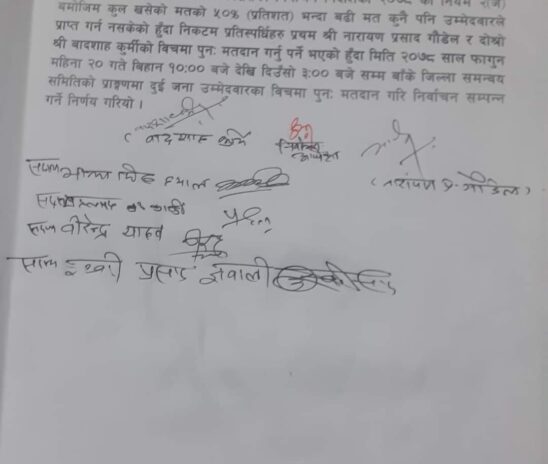 बमोजिम कुल खसेको मतको ५०% (प्रतिशत) भन्दा बढी मत कुनै पनि उम्मेदवारले
प्राप्त गर्न नसकेको हुँदा निकटम प्रतिस्पर्धिहरु प्रथम श्री नारायण प्रसाद गौडेल र दोश्रो
श्री बादशाह कुर्मीको विचमा पुनः मतदान गर्नु पर्ने भएको हुँदा मिति २०७८ साल फागुन
महिना २० गते विहान १०:०० बजे देखि दिउँसो ३:०० बजे सम्म बाँके जिल्ला समन्वय
समितिको प्राङ्गणमा दुई जना उम्मेदवारका विचमा पुनः मतदान गरि निर्वाचन सम्पन्न
गर्ने निर्णय गरियो ।
( बादशाह कुर्मी
(नारायण प्र. गौडेल)
सदस्य
सदस्य
सदस्य वीरेन्द्र यादव
प्रसाद ज्ञवाली